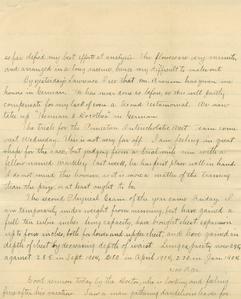 so far defied my best efforts at analysis. The flowers are very minute
and arranged in a long raceme, hence very difficult to make out.
By yesterday's Lawrence I see that Mr. has given me
honors in German. He has never done so before, so this will partly
compensate for my lack of even a Second Testimonial. We now
take up "Hermann & Dorothea" in German.
The trials for the Princeton Interscholastic Meet came
next Wednesday. This is not very far off. I am feeling in great
shape for the race, and judging from a trial with me with a
fellow named Wardley last week, he has first place well in hand.
I do not mind this however, as it is more a matter of the training
than the prize, or at least ought to be.
The second Physical Exam of the year came Friday. I
am temporarily under weight from measuring, but have gained a
full ten cubic inches lung capacity, have boosted chest expansion
up to four inches, both for lower and upper chest, and have gained in
depth of chest by decreasing depth of waist. Lungs, pretty now 294
against 285 in Sept. 1904, 200 in April 1904, 230 in Jan 1904.
Good sermon today by the Doctor, who is looking and feeling
fine after his vacation. Saw a man gathering dandelion heads for